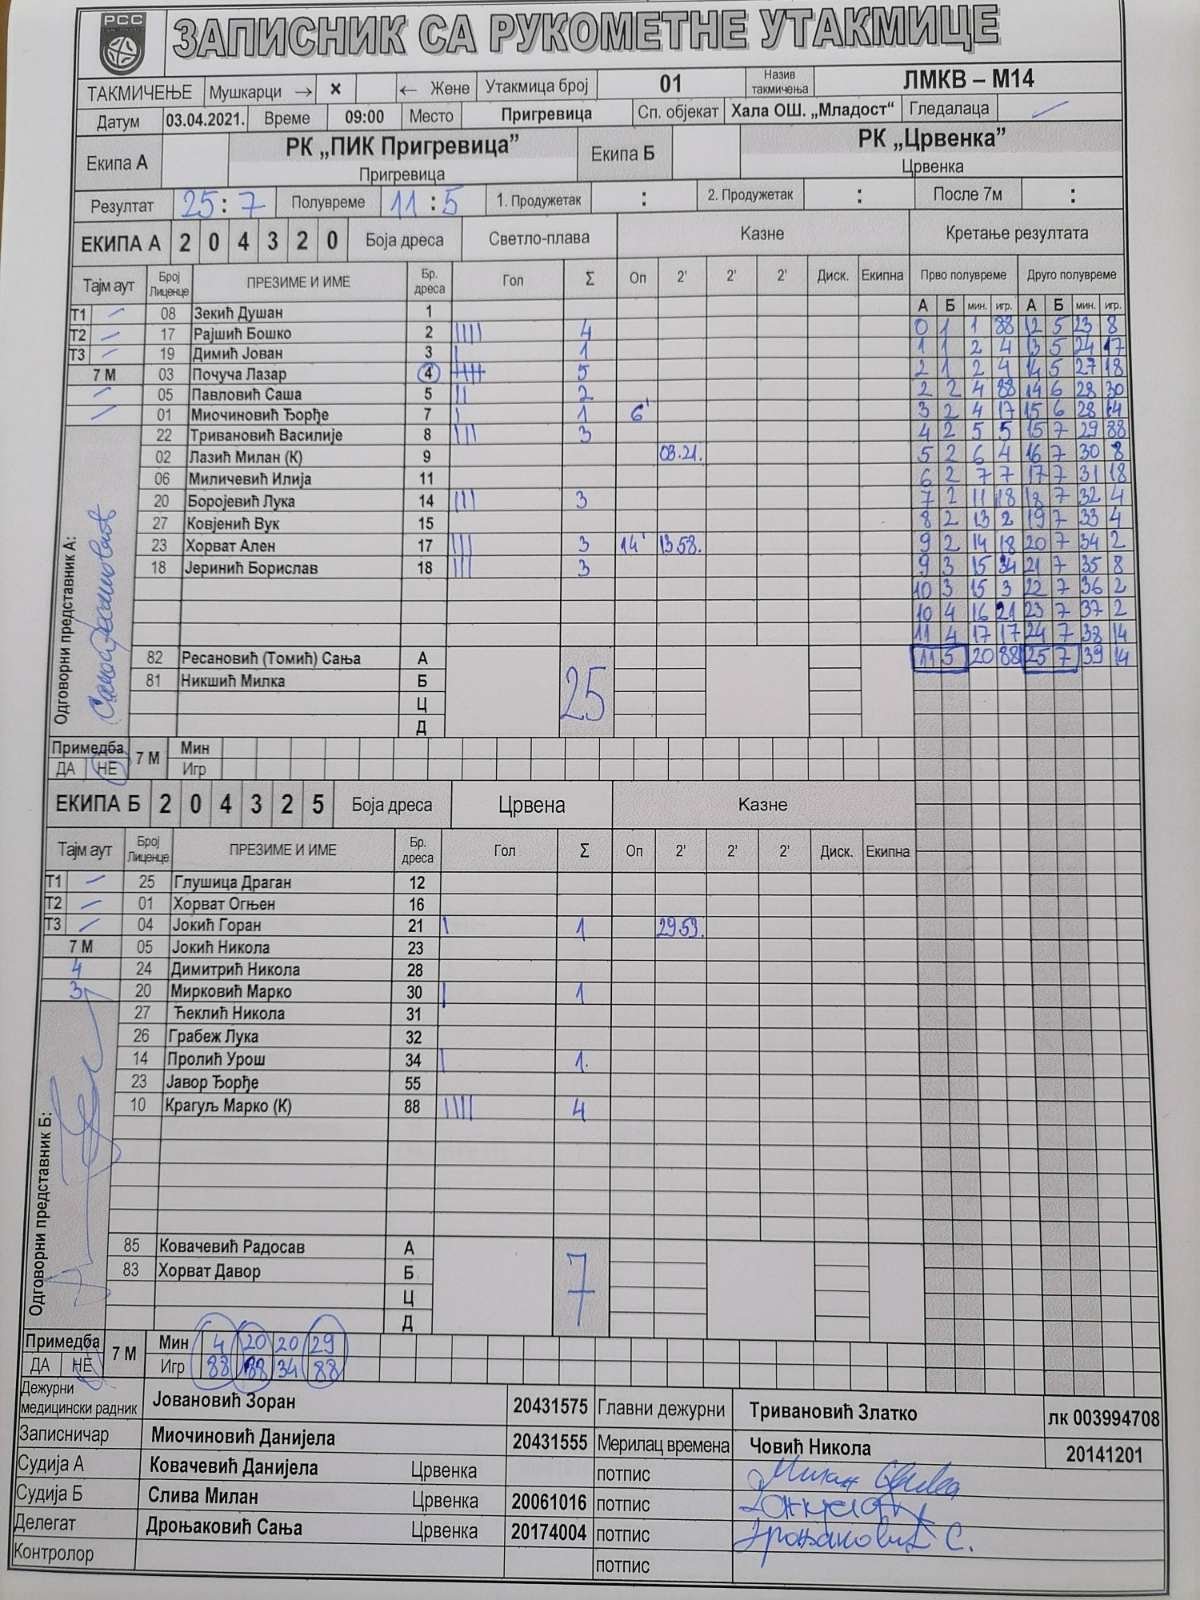 РСС
ЗАПИСНИК СА РУКОМЕТНЕ УТАКМИЦЕ
ТАКМИЧЕЊЕ Мушкарци → × ← Жене Утакмица број 01 Назив такмичења ЛМКВ – М14
Датум 03.04.2021. Време 09:00 Место Пригревица Сп. објекат Хала ОШ. „Младост“ Гледалаца
Екипа А РК „ПИК Пригревица” Екипа Б РК „Црвенка”
Пригревица Црвенка
Резултат 25:7 Полувреме 11:5 1. Продужетак : 2. Продужетак : После 7м :
ЕКИПА А 2 0 4 3 2 0 Боја дреса Светло-плава Казне Кретање резултата
Тајм аут Број Лиценце ПРЕЗИМЕ И ИМЕ Бр. дреса Гол Σ Оп 2' 2' 2' Диск. Екипна Прво полувреме Друго полувреме
А Б мин. игр. А Б мин. игр.
Т1 08 Зекић Душан 1 0 1 1 88 12 5 23 8
Т2 17 Рајшић Бошко 2 4 1 1 2 4 13 5 24 17
Т3 19 Димић Јован 3 1 2 1 2 4 14 5 27 18
7 М 03 Почуча Лазар 4 5 2 2 4 88 14 6 28 30
05 Павловић Саша 5 2 3 2 4 17 15 6 28 14
01 Миочиновић Ђорђе 7 1 6' 4 2 5 5 15 7 29 88
22 Тривановић Василије 8 3 5 2 6 4 16 7 30 8
02 Лазић Милан (К) 9 03.21. 6 2 7 7 17 7 31 18
06 Миличевић Илија 11 7 2 11 18 18 7 32 4
20 Боројевић Лука 14 3 8 2 13 2 19 7 33 4
27 Ковјенић Вук 15 9 2 14 18 20 7 34 2
23 Хорват Ален 17 3 14' 13.58. 9 3 15 34 21 7 35 8
18 Јеринић Борислав 18 3 10 3 15 3 22 7 36 2
10 4 16 21 23 7 37 2
11 4 17 17 24 7 38 14
11 5 20 88 25 7 39 14
Одговорни представник А:
82 Ресановић (Томић) Сања А 25
81 Никшић Милка Б
Ц
Д
Примедба 7 М Мин
ДА НЕ Игр
ЕКИПА Б 2 0 4 3 2 5 Боја дреса Црвена Казне
Тајм аут Број Лиценце ПРЕЗИМЕ И ИМЕ Бр. дреса Гол Σ Оп 2' 2' 2' Диск. Екипна
Т1 25 Глушица Драган 12
Т2 01 Хорват Огњен 16
Т3 04 Јокић Горан 21 1 29.53.
7 М 05 Јокић Никола 23
4 24 Димитрић Никола 28
3 20 Мирковић Марко 30 1
27 Ћеклић Никола 31
26 Грабеж Лука 32
14 Пролић Урош 34 1
23 Јавор Ђорђе 55
10 Крагуљ Марко (К) 88 4
Одговорни представник Б:
85 Ковачевић Радосав А 7
83 Хорват Давор Б
Ц
Д
Примедба 7 М Мин 4 20 20 29
ДА НЕ Игр 88 88 34 88
Дежурни медицински радник Јовановић Зоран 20431575 Главни дежурни Тривановић Златко лк 003994708
Записничар Миочиновић Данијела 20431555 Мерилац времена Човић Никола 20141201
Судија А Ковачевић Данијела Црвенка потпис
Судија Б Слива Милан Црвенка 20061016 потпис
Делегат Дроњаковић Сања Црвенка 20174004 потпис Дроњаковић С.
Контролор потпис